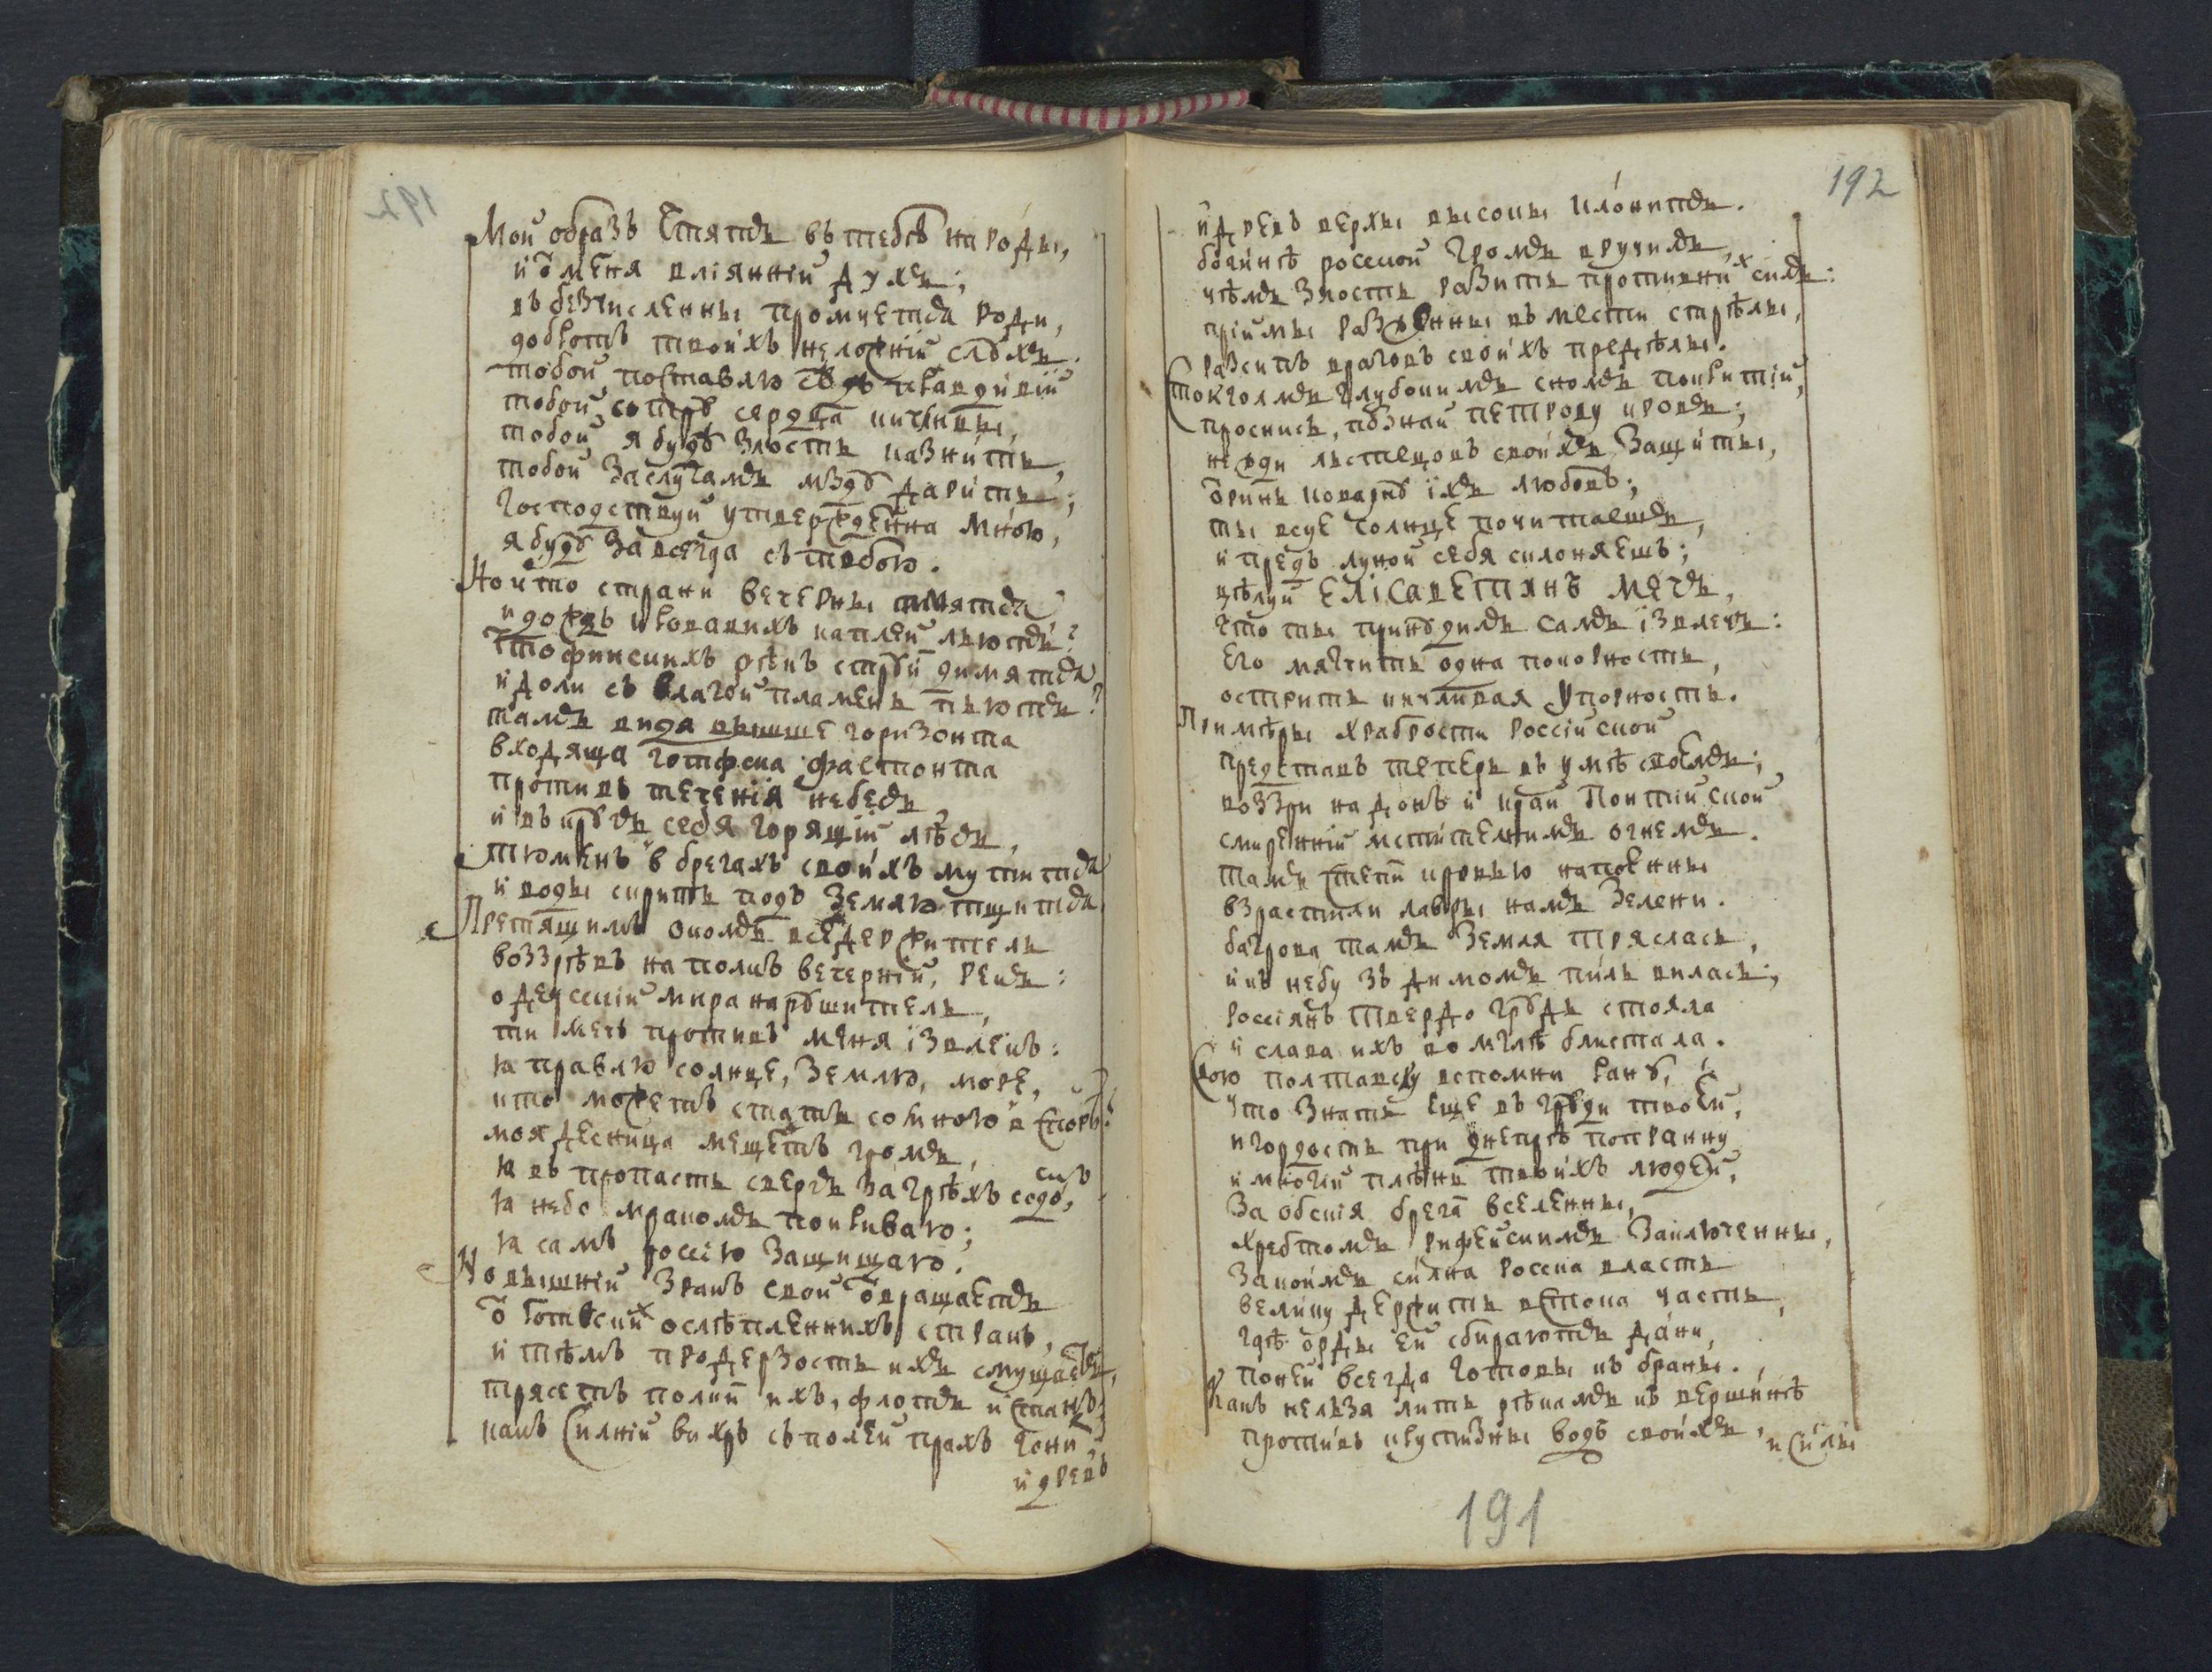 192
Мой образъ Чтятъ въ тебѣ народы,
и ѿ меня вліянній духъ;
въ безчисленны промчется роди,
добротъ твоихъ неложній слухъ.
тобой поставлю сȣдъ правдивій
тобой сотрȣ сердца кичливы,
тобой я бȣдȣ злость казнить,
тобой заслугамъ мздȣ дарить;
господствуй утвержденна мною,
я бȣдȣ завсегда съ тобою.
Но что страни вечерны тмятся
и дождь кровавихъ каплей льютъ?
Что финскихъ рѣкъ струй димятся
и доли съ влагой пламень пьютъ?
тамъ видя выше горизонта
входяща готфска фаетонта
противъ теченія небесъ
и въкрȣгъ себя горящій лѣсъ,
тюмень в брегахъ своихъ мутится
и воды скрить подъ землю тщится.
Претящимъ окомъ вседержитель
воззрѣвъ на полкъ вечерній, рекъ:
о дерзскій мира нарȣшитель,
ти мечь противъ меня ізвлекъ:
я правлю солнце, землю, море,
кто можетъ стать со мною в спорѣ?
моя десница мещетъ громъ,
я въ пропасть сверхъ за грѣхъ содо,
скъ
я небо мракомъ покриваю;
я самъ россію защищаю.
Но вышній зракъ свой ѿвращаетъ
ѿ готски х ослѣпленнихъ странъ,
и тѣмъ продерзость ихъ смущаетъ,
трясетъ полки ихъ, флотъ и станъ,
какъ силній вихръ съ полей прахъ гони
и древъ
192
и древъ верхы высоцы клонитъ.
богинѣ росской громъ вручилъ,
чѣмъ злость разить противни х силъ:
прійми раждены въ мести стрѣлы,
разсипь враговъ своихъ предѣлы.
Стокголмъ глубокимъ сномъ покритій,
проснись, познай петрову кровь;
не жди льстецовъ своихъ защиты,
ѿринь коварнȣ ихъ любовь;
ты всуе солнце почитаешь,
и предъ луной себя склоняешь;
цѣлуй ЕЛІСАВЕТИНЪ мечъ,
что ты принȣдилъ самъ ізвлечь:
его мягчить одна покорность,
острить кичливая упорность.
Примѣры храбрости Россійской
представь теперь въ умѣ своемъ;
воззри на донъ и край Понтійской
смиренній мстителнимъ огнемъ.
тамъ степи кровью напоенны
взрастили лавры намъ зелени.
багрова тамъ земля тряслась,
и къ небу зъ димомъ пиль вилась;
россіянъ твердо грȣдь стояла
и слава ихъ во мглѣ блистала.
Свою полтавскȣ вспомни ранȣ,
что знать еще въ грȣди твоей,
и гордость при днепрѣ попранну
и многій плѣнъ твоихъ людей,
За обскія брега вселенны,
хребтомъ рифейскимъ заключенны,
закоимъ силна росска власть
велику держить встока часть,
гдѣ орды ей сбираютъ дани,
по ней всегда готовы къ брани.
Какъ нельзя лить рѣкамъ къ вершинѣ
противъ крутизны водъ своихъ,
и силы
191